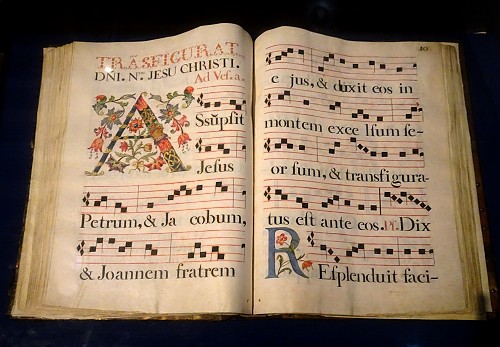 TRÃSFIGURAT.
DNI. Nr̃. JESU CHRISTI.
Ad Ves.a.
Assũpsit
Jesus
Petrum, & Ja cobum,
& Joannem fratrem
e jus, & duxit eos in
montem exce lsum se-
or sum, & transfigura-
tus est ante eos. Ps. Dix
REsplenduit faci-